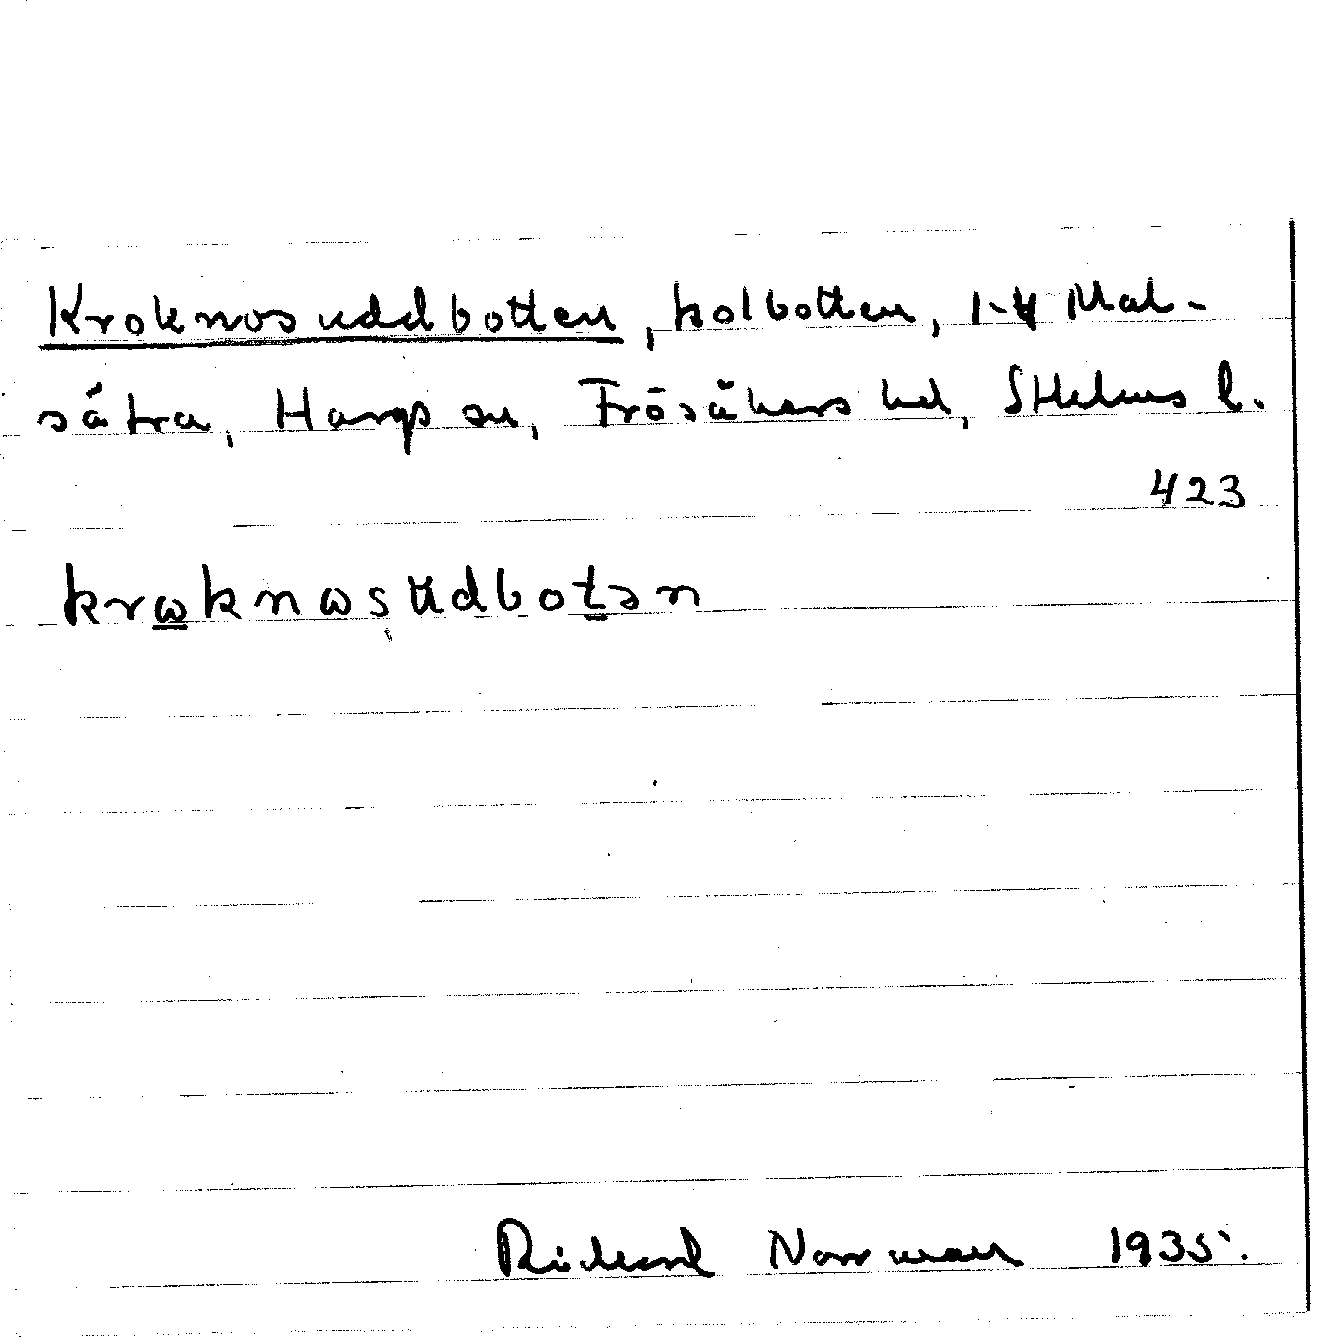 Kroknosuddbotten, kolbotten, 1-4 Mal-
sätra, Hargs sn, Frösåkers hd, Sthlms l.
423
krωknωsudbotən
Rickard Norrman 1935.